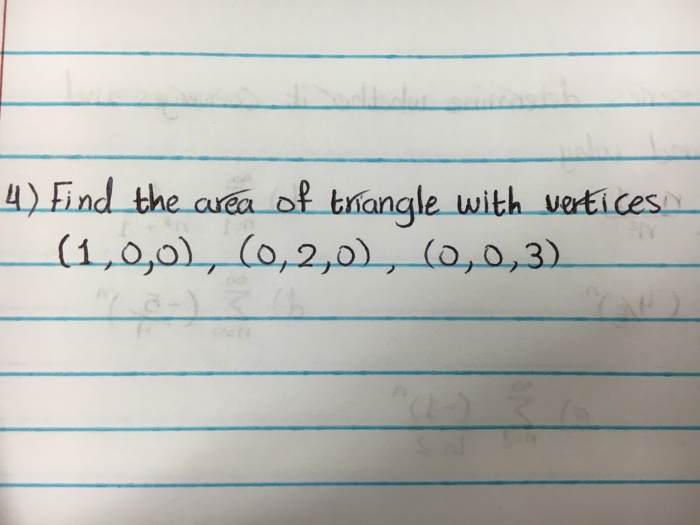 4) Find the area of triangle with vertices
(1,0,0), (0,2,0), (0,0,3)